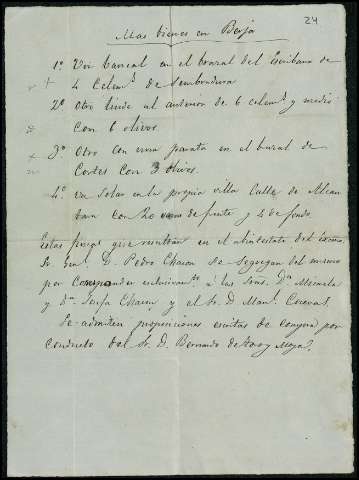 24
Mas bienes en Berja
1º Un bancal en el brazal del Escribano de
4 Celemˢ de sembradura
2º Otro linde al anterior de 6 celemˢ y medio
con 6 olivos
3º Otro con una parata en el brazal de
Cortes con 3 olivos.
4º Un Solar en la propia villa Calle de
con 20 varas de frente y 4 de fondo
Estas fincas que resultan en el abintestato del Excmo.
Sr. Gral. D. Pedro Chacon se segregan del mismo
por Corresponder esclusivamte á las Sras. Dª Micaela
y Dª Josefa Chacon y el Sr. D. Manl. Cuevas.
Se admiten proposiciones escritas de compra por
conducto del Sr. D. Bernardo de Toro y Moya.